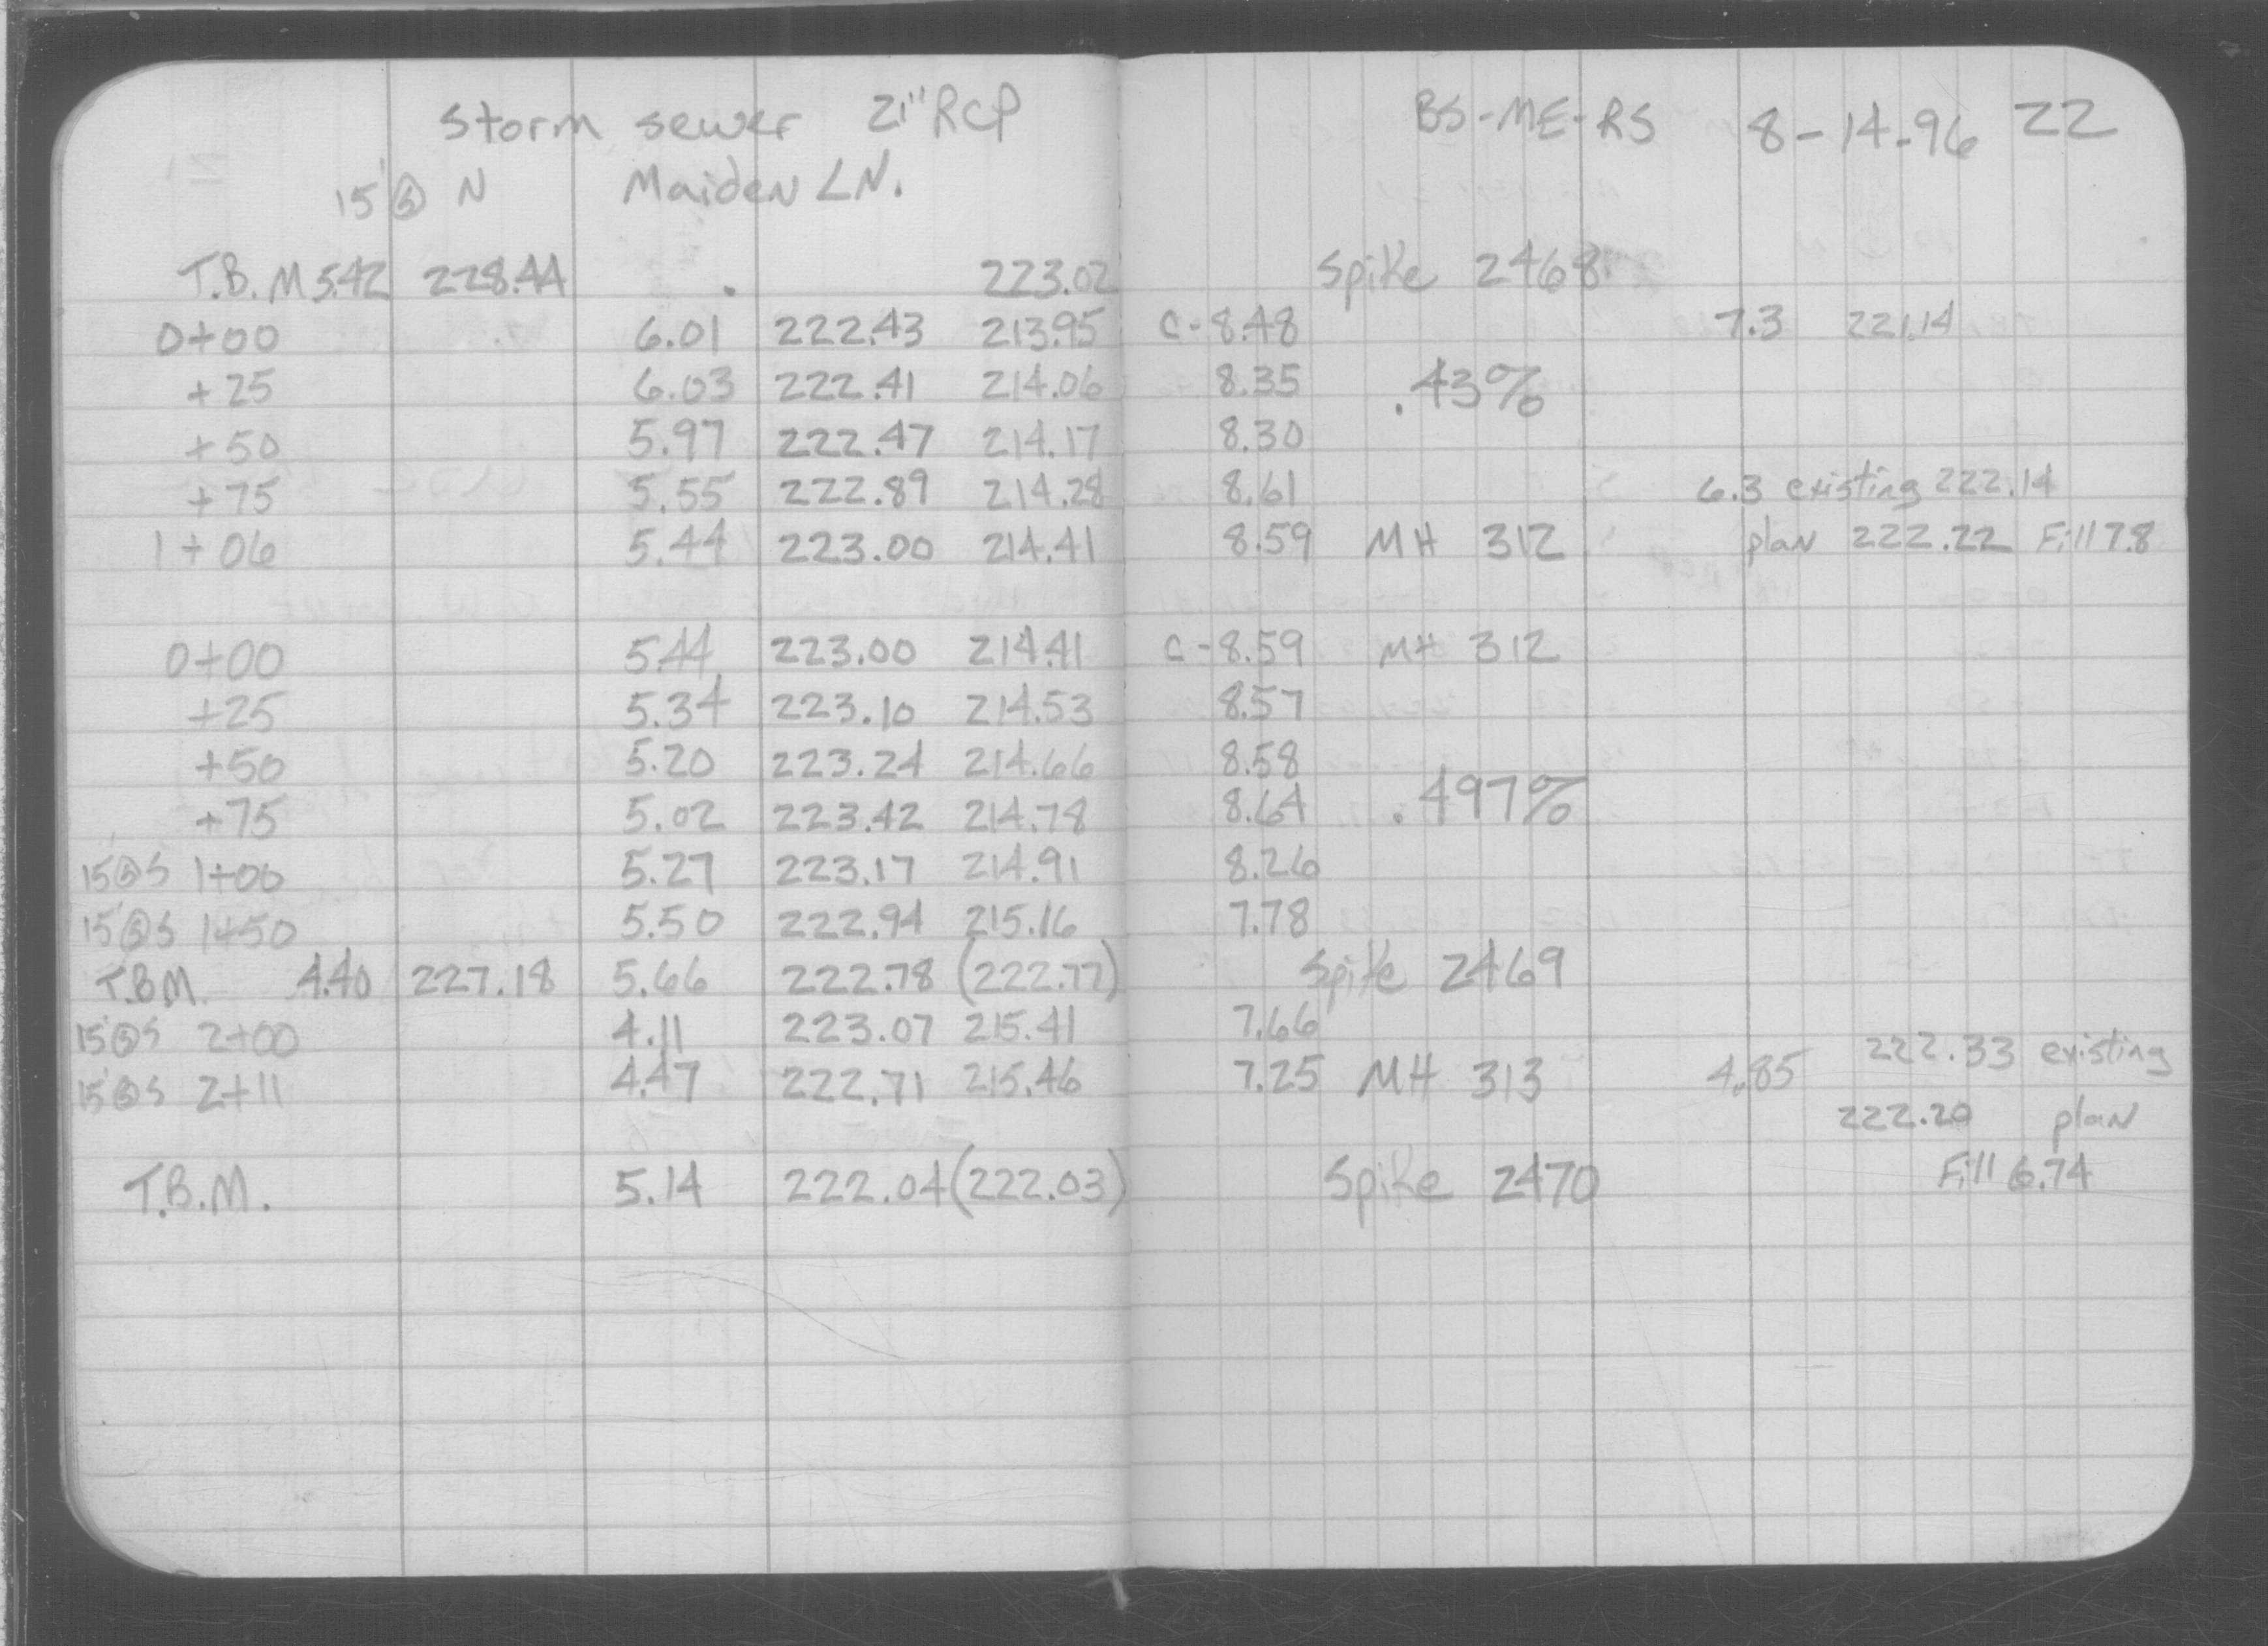 storm sewer 21" RCP BS-ME-RS 8-14-96 22
15' @ N Maiden LN.
T.B.M 5.42 228.44 223.02 Spike 2468
0+00 6.01 222.43 213.95 C-8.48 7.3 221.14
+25 6.03 222.41 214.06 8.35 .43%
+50 5.97 222.47 214.17 8.30
+75 5.55 222.89 214.28 8.61 6.3 existing 222.14
1+06 5.44 223.00 214.41 8.59 MH 312 plan 222.22 Fill 7.8
0+00 5.44 223.00 214.41 C-8.59 MH 312
+25 5.34 223.10 214.53 8.57
+50 5.20 223.24 214.66 8.58
+75 5.02 223.42 214.78 8.64 .497%
15'@S 1+00 5.27 223.17 214.91 8.26
15'@S 1+50 5.50 222.94 215.16 7.78
T.B.M. 4.40 227.18 5.66 222.78 (222.77) Spike 2469
15'@S 2+00 4.11 223.07 215.41 7.66
15'@S 2+11 4.47 222.71 215.46 7.25 MH 313 4.85 222.33 existing
222.20 plan
T.B.M. 5.14 222.04 (222.03) Spike 2470 Fill 6.74